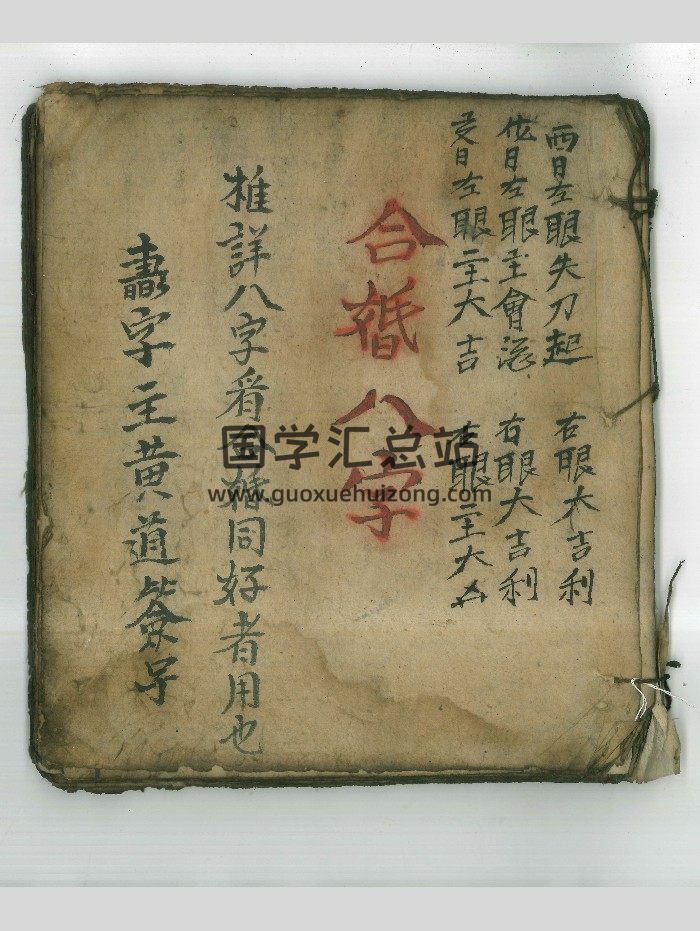 酉日左眼失刀起 右眼大吉利
日左眼主會 右眼大吉利
日左眼主大吉 眼主大凶
合婚八字
推詳八字看合婚同好者用也
字主黄道簽
国学汇总站
www.guoxuehuizong.com